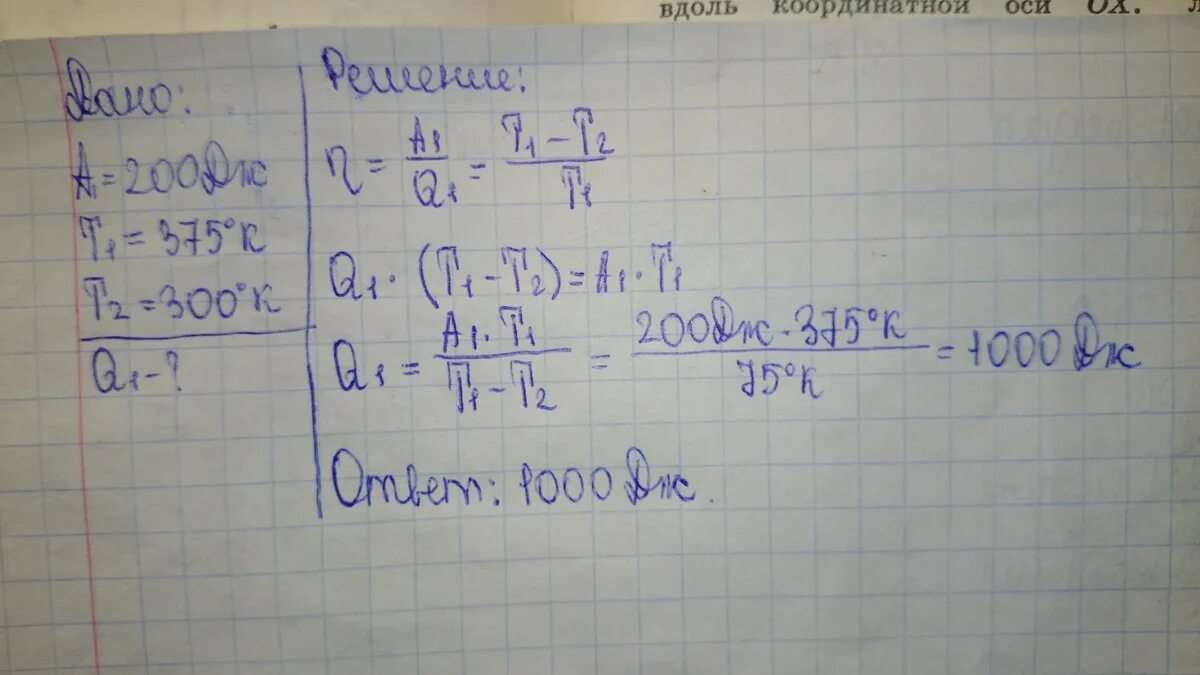 вдоль координатной оси OX.
Дано:
A₁ = 200 Дж
T₁ = 375°К
T₂ = 300°К
Q₁ - ?
Решение:
η = A₁/Q₁ = (T₁ - T₂)/T₁
Q₁ · (T₁ - T₂) = A₁ · T₁
Q₁ = (A₁ · T₁)/(T₁ - T₂) = (200 Дж · 375°К)/(75°К) = 1000 Дж
Ответ: 1000 Дж.